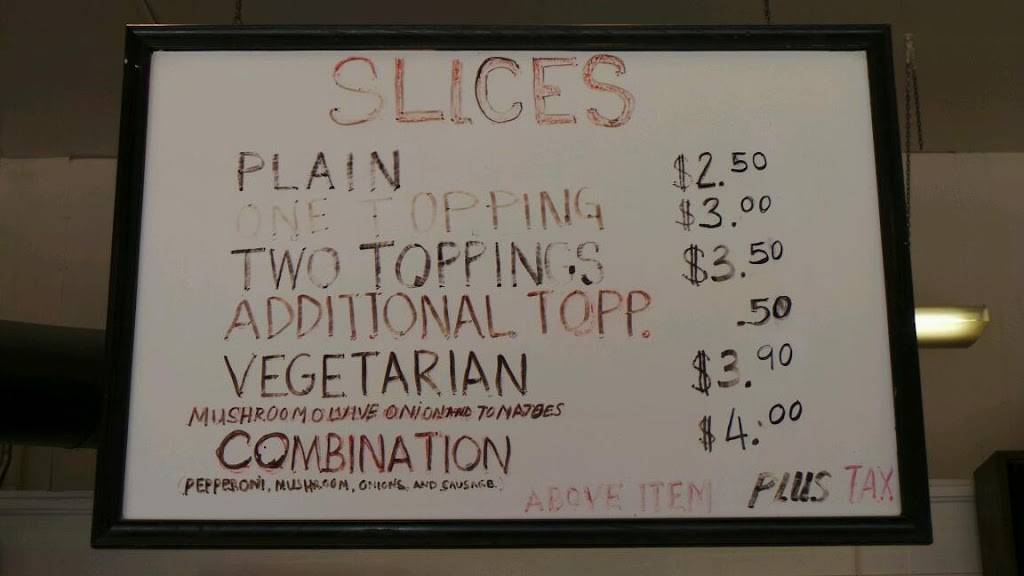 SLICES
PLAIN $2.50
ONE TOPPING $3.00
TWO TOPPINGS $3.50
ADDITIONAL TOPP. .50
VEGETARIAN $3.90
MUSHROOM OLIVE ONION AND TOMATOES
COMBINATION $4.00
PEPPERONI, MUSHROOM, ONIONS AND SAUSAGE.
ABOVE ITEM PLUS TAX